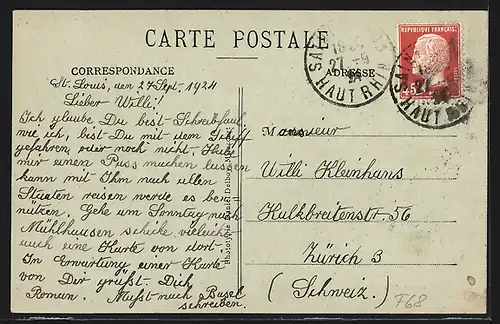 CARTE POSTALE
CORRESPONDANCE
ADRESSE
St. Louis, den 27 Sept. 1924
Lieber Willi!
Ich glaube Du bist Schreibfaul
wie ich, bist Du mit dem Schiff
gefahren oder noch nicht. Habe
mir einen Pass machen lassen
kann mit Ihm nach allen
Staaten reisen werde es be-
nützen. Gehe am Sonntag nach
Mühlhausen schicke vieleicht
auch eine Karte von dort.
In Erwartung einer Karte
von Dir grüsst. Dich
Roman. Mußt nach Basel
schreiben.
Monsieur
Willi Kleinhans
Kalkbreitenstr. 56
Zürich 3
(Schweiz.)
F68
REPUBLIQUE FRANÇAISE
POSTES
45c
SAINT
27 -9
24
HAUT RHIN
SAINT
HAUT
Phototypie Daniel Delboy